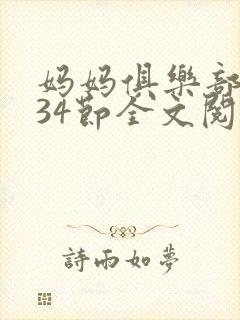 妈妈俱樂部
34節全文閱
詩雨如夢